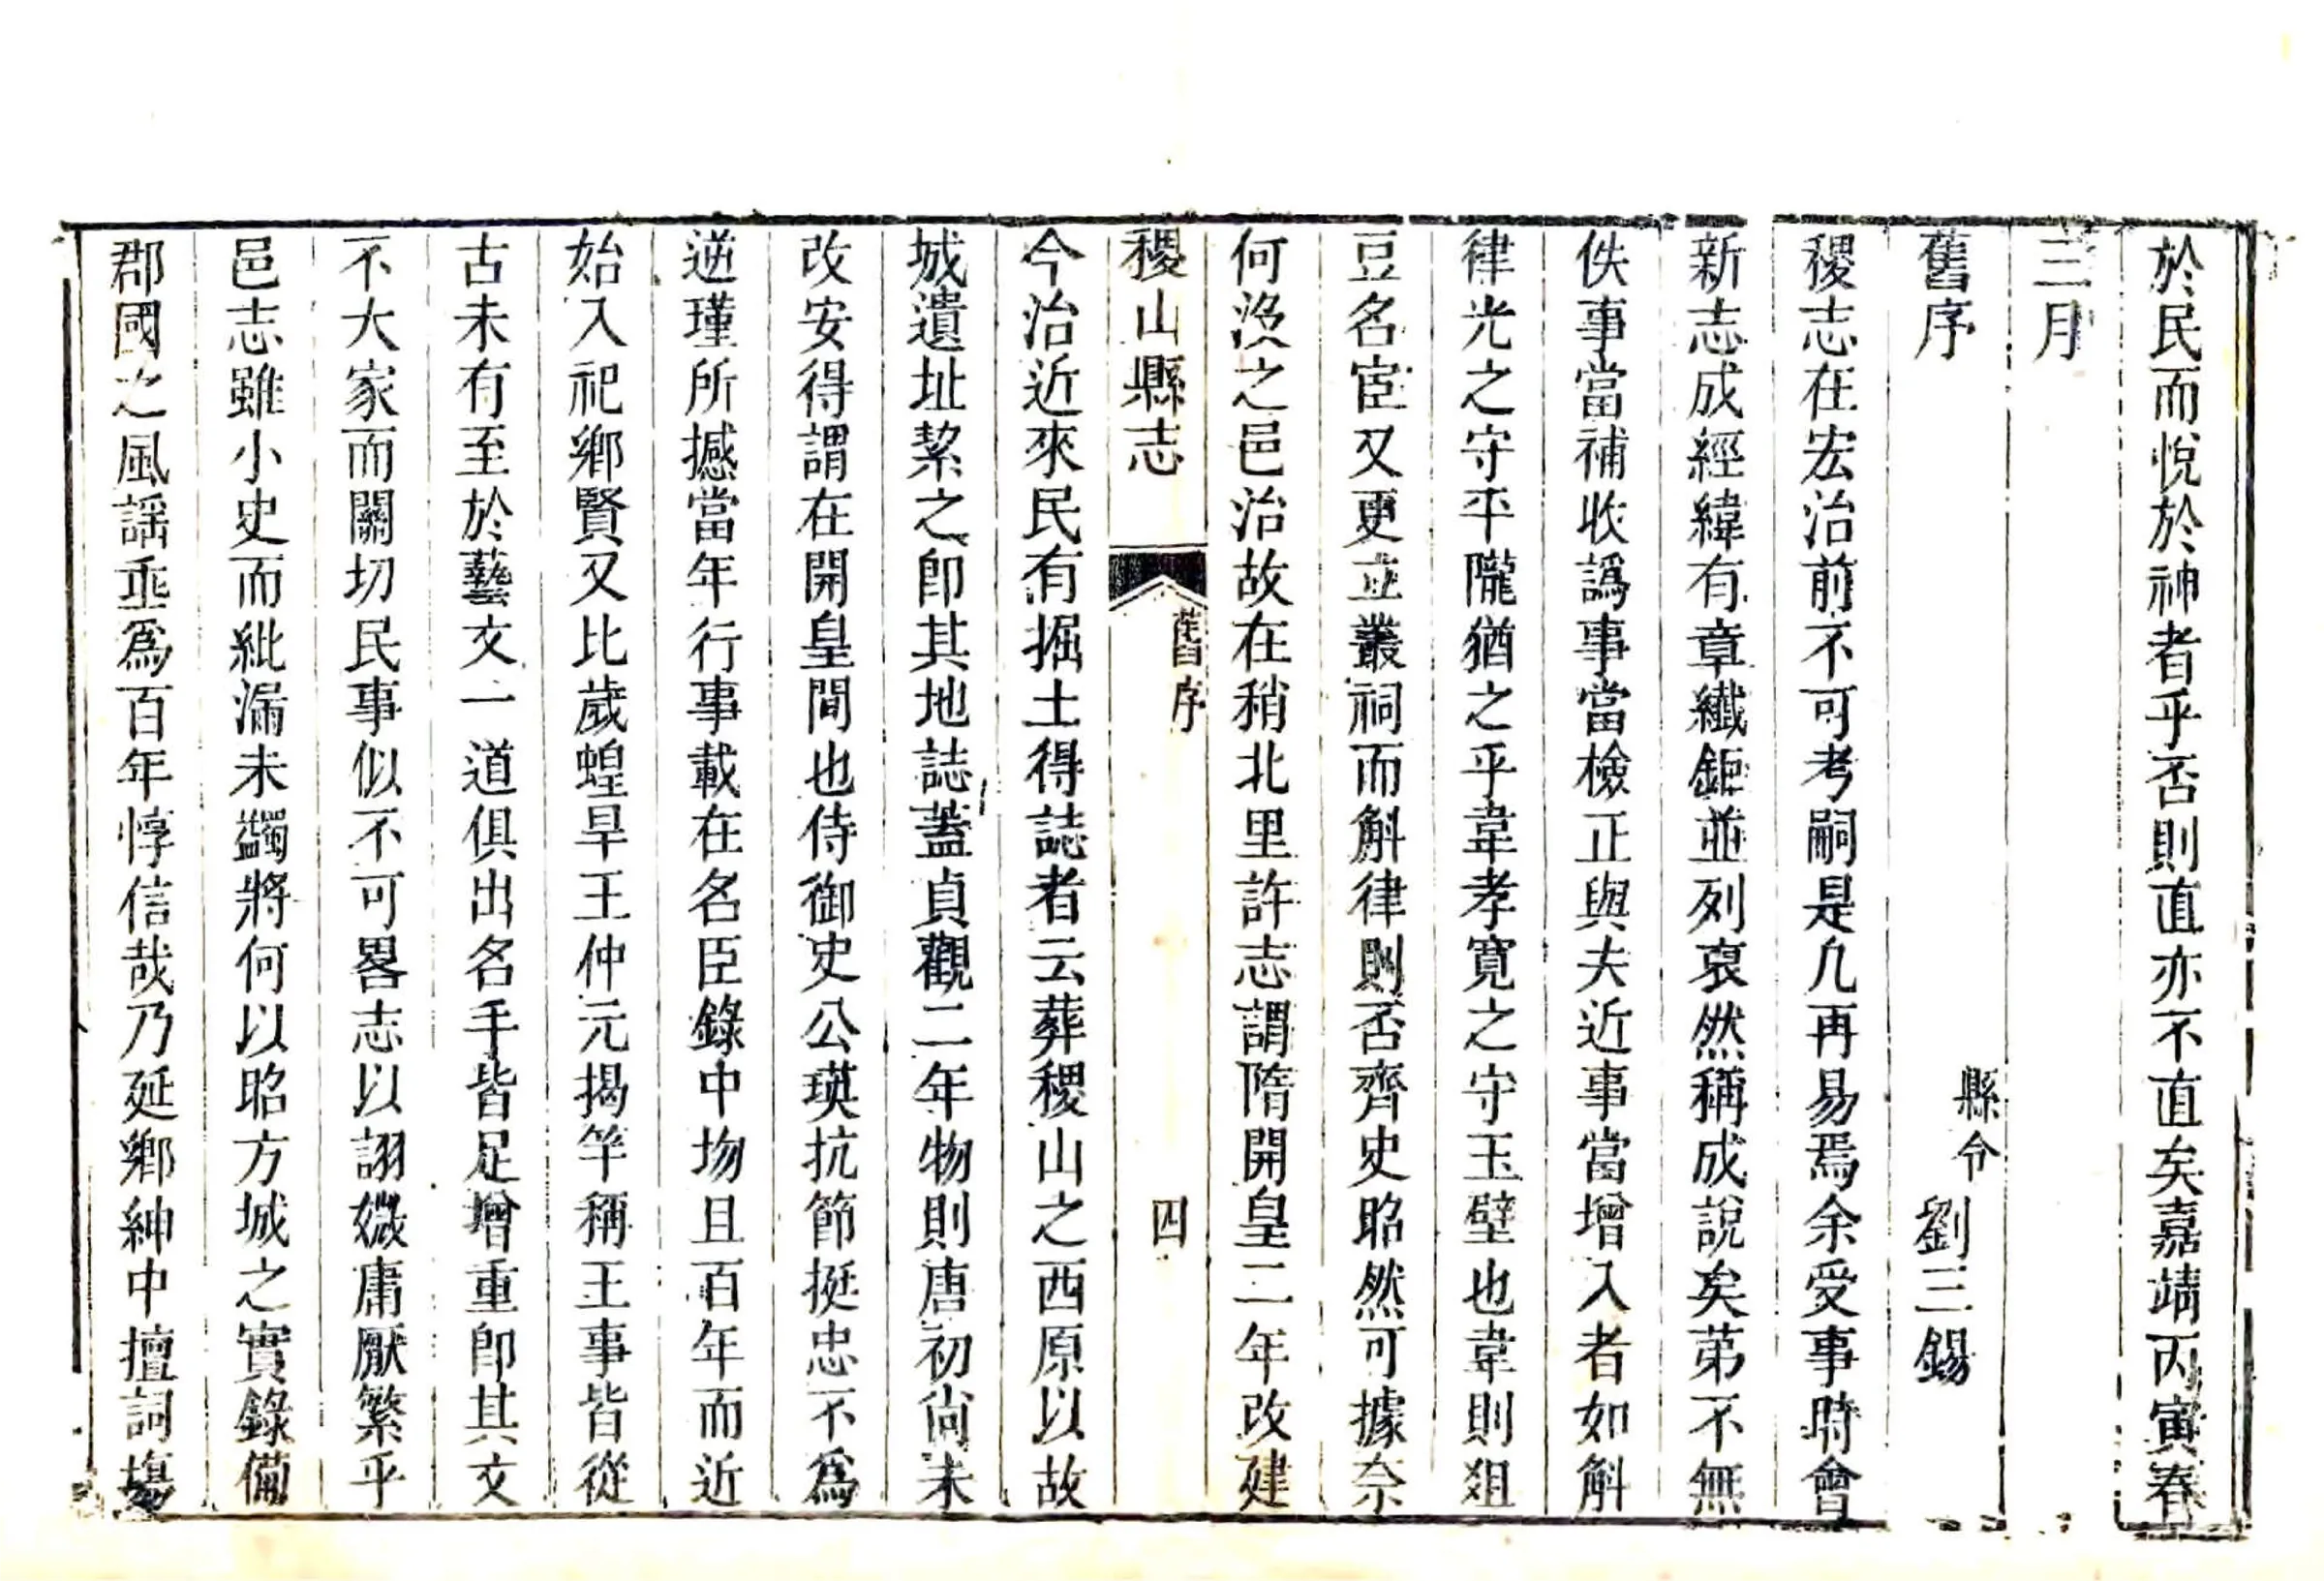 於民而悅於神者乎否則直亦不直矣嘉靖丙寅春
三月
舊序
縣令劉三錫
稷志在宏治前不可考嗣是凢再易焉余受事時會
新志成經緯有章纖鉅並列裒然稱成說矣苐不無
佚事當補收譌事當檢正與夫近事當增入者如斛
律光之守平隴猶之乎韋孝寬之守玉壁也韋則俎
豆名宦又更立叢祠而斛律則否齊史昭然可據奈
何沒之邑治故在稍北里許志謂隋開皇二年改建
稷山縣志
舊序
四
今治近來民有掘土得誌者云葬稷山之西原以故
城遺址挈之卽其地誌蓋貞觀二年物則唐初尙未
改安得謂在開皇間也侍御史公瑛抗節挺忠不爲
逆瑾所撼當年行事載在名臣錄中㘬且百年而近
始入祀鄉賢又比歲蝗旱王仲元揭竿稱王事皆從
古未有至於藝文一道俱出名手皆足增重卽其文
不大家而關切民事似不可畧志以詡媺庸厭繁乎
邑志雖小史而紕漏未蠲將何以昭方城之實錄備
郡國之風謠亟爲百年惇信哉乃延鄉紳中擅詞塲